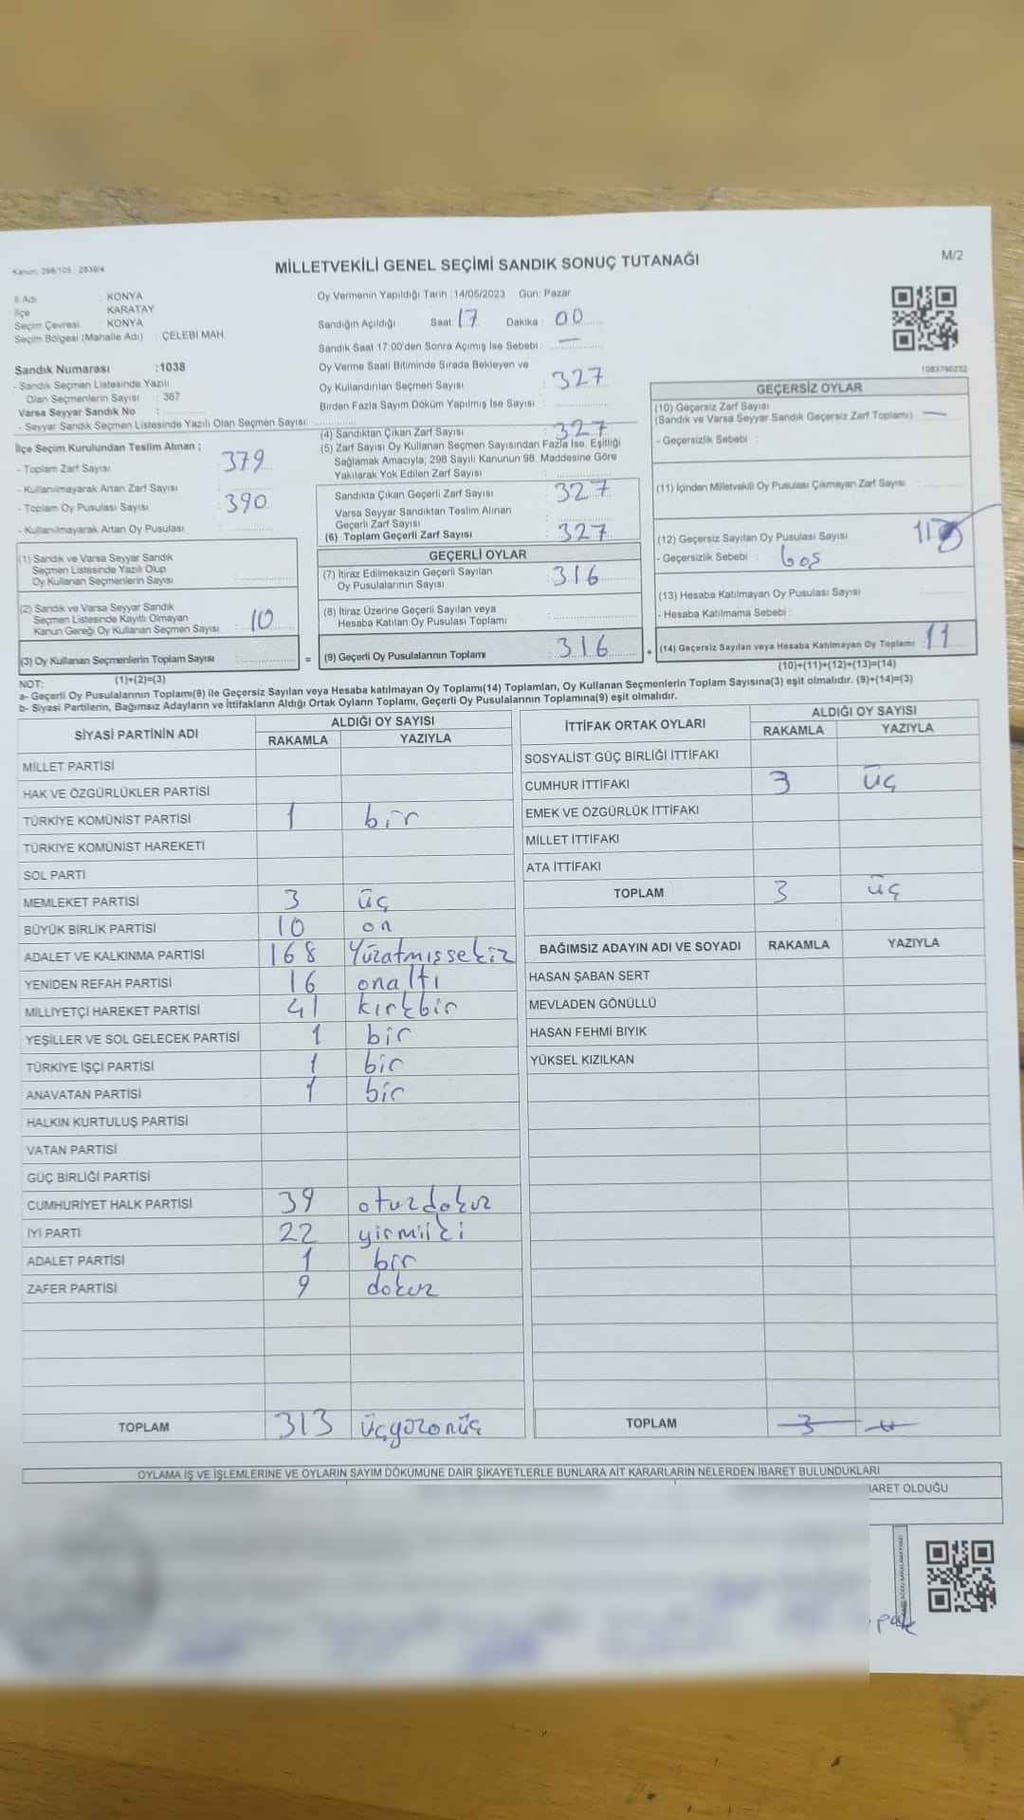 Kanun: 298/105 : 2839/4
MİLLETVEKİLİ GENEL SEÇİMİ SANDIK SONUÇ TUTANAĞI
M/2
İl Adı : KONYA
İlçe : KARATAY
Seçim Çevresi : KONYA
Seçim Bölgesi (Mahalle Adı) : ÇELEBİ MAH.
Sandık Numarası :1038
- Sandık Seçmen Listesinde Yazılı
Olan Seçmenlerin Sayısı : 367
Varsa Seyyar Sandık No :
- Seyyar Sandık Seçmen Listesinde Yazılı Olan Seçmen Sayısı:
İlçe Seçim Kurulundan Teslim Alınan :
- Toplam Zarf Sayısı 379
- Kullanılmayarak Artan Zarf Sayısı
- Toplam Oy Pusulası Sayısı 390
- Kullanılmayarak Artan Oy Pusulası
(1) Sandık ve Varsa Seyyar Sandık
Seçmen Listesinde Yazılı Olup
Oy Kullanan Seçmenlerin Sayısı
(2) Sandık ve Varsa Seyyar Sandık
Seçmen Listesinde Kayıtlı Olmayan
Kanun Gereği Oy Kullanan Seçmen Sayısı : 10
(3) Oy Kullanan Seçmenlerin Toplam Sayısı
(1)+(2)=(3)
Oy Vermenin Yapıldığı Tarih :14/05/2023 Gün: Pazar
Sandığın Açıldığı Saat: 17 Dakika : 00
Sandık Saat 17:00'den Sonra Açımış İse Sebebi : —
Oy Verme Saati Bitiminde Sırada Bekleyen ve
Oy Kullandırılan Seçmen Sayısı : 327
Birden Fazla Sayım Döküm Yapılmış İse Sayısı
(4) Sandıktan Çıkan Zarf Sayısı : 327
(5) Zarf Sayısı Oy Kullanan Seçmen Sayısından Fazla İse, Eşitliği
Sağlamak Amacıyla; 298 Sayılı Kanunun 98. Maddesine Göre
Yakılarak Yok Edilen Zarf Sayısı
Sandıkta Çıkan Geçerli Zarf Sayısı : 327
Varsa Seyyar Sandıktan Teslim Alınan
Geçerli Zarf Sayısı
(6) Toplam Geçerli Zarf Sayısı : 327
GEÇERLİ OYLAR
(7) İtiraz Edilmeksizin Geçerli Sayılan
Oy Pusulalarının Sayısı : 316
(8) İtiraz Üzerine Geçerli Sayılan veya
Hesaba Katılan Oy Pusulası Toplamı
= (9) Geçerli Oy Pusulalarının Toplamı : 316
1083790232
GEÇERSİZ OYLAR
(10) Geçersiz Zarf Sayısı
(Sandık ve Varsa Seyyar Sandık Geçersiz Zarf Toplamı) : —
- Geçersizlik Sebebi :
(11) İçinden Milletvekili Oy Pusulası Çıkmayan Zarf Sayısı
(12) Geçersiz Sayılan Oy Pusulası Sayısı : 11
- Geçersizlik Sebebi : boş
(13) Hesaba Katılmayan Oy Pusulası Sayısı
- Hesaba Katılmama Sebebi :
+ (14) Geçersiz Sayılan veya Hesaba Katılmayan Oy Toplamı 11
(10)+(11)+(12)+(13)=(14)
NOT:
a- Geçerli Oy Pusulalarının Toplamı(9) ile Geçersiz Sayılan veya Hesaba katılmayan Oy Toplamı(14) Toplamları, Oy Kullanan Seçmenlerin Toplam Sayısına(3) eşit olmalıdır. (9)+(14)=(3)
b- Siyasi Partilerin, Bağımsız Adayların ve İttifakların Aldığı Ortak Oyların Toplamı, Geçerli Oy Pusulalarının Toplamına(9) eşit olmalıdır.
SİYASİ PARTİNİN ADI ALDIĞI OY SAYISI
RAKAMLA YAZIYLA
MİLLET PARTİSİ
HAK VE ÖZGÜRLÜKLER PARTİSİ
TÜRKİYE KOMÜNİST PARTİSİ 1 bir
TÜRKİYE KOMÜNİST HAREKETİ
SOL PARTİ
MEMLEKET PARTİSİ 3 üç
BÜYÜK BİRLİK PARTİSİ 10 on
ADALET VE KALKINMA PARTİSİ 168 Yüzatmışsekiz
YENİDEN REFAH PARTİSİ 16 onaltı
MİLLİYETÇİ HAREKET PARTİSİ 41 kırkbir
YEŞİLLER VE SOL GELECEK PARTİSİ 1 bir
TÜRKİYE İŞÇİ PARTİSİ 1 bir
ANAVATAN PARTİSİ 1 bir
HALKIN KURTULUŞ PARTİSİ
VATAN PARTİSİ
GÜÇ BİRLİĞİ PARTİSİ
CUMHURİYET HALK PARTİSİ 39 oturdokuz
İYİ PARTİ 22 yirmiiki
ADALET PARTİSİ 1 bir
ZAFER PARTİSİ 9 dokuz
TOPLAM 313 üçyüzonüç
İTTİFAK ORTAK OYLARI ALDIĞI OY SAYISI
RAKAMLA YAZIYLA
SOSYALİST GÜÇ BİRLİĞİ İTTİFAKI
CUMHUR İTTİFAKI 3 üç
EMEK VE ÖZGÜRLÜK İTTİFAKI
MİLLET İTTİFAKI
ATA İTTİFAKI
TOPLAM 3 üç
BAĞIMSIZ ADAYIN ADI VE SOYADI RAKAMLA YAZIYLA
HASAN ŞABAN SERT
MEVLADEN GÖNÜLLÜ
HASAN FEHMİ BIYIK
YÜKSEL KIZILKAN
TOPLAM 3
OYLAMA İŞ VE İŞLEMLERİNE VE OYLARIN SAYIM DÖKÜMÜNE DAİR ŞİKAYETLERLE BUNLARA AİT KARARLARIN NELERDEN İBARET BULUNDUKLARI
İBARET OLDUĞU